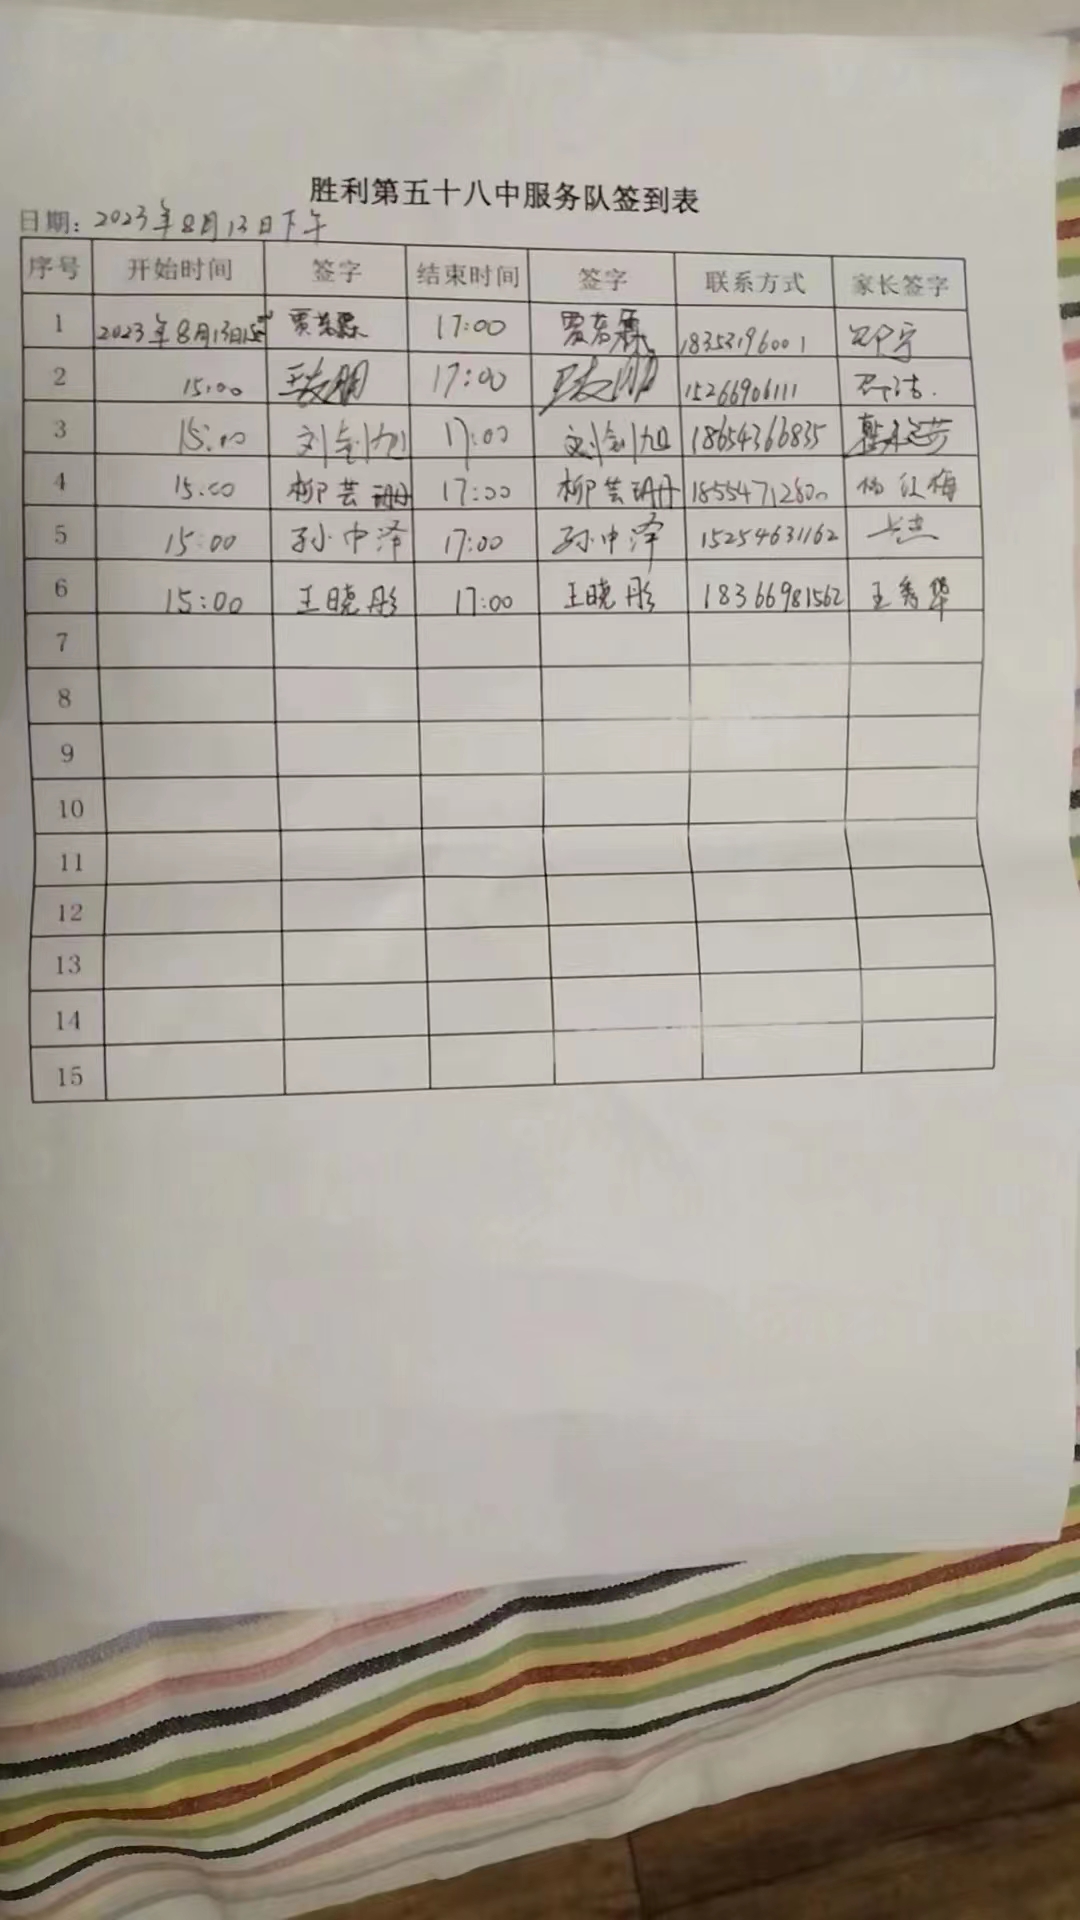 胜利第五十八中服务队签到表
日期: 2023年8月13日下午
序号 开始时间 签字 结束时间 签字 联系方式 家长签字
1 2023年8月13日15:00 贾若霖 17:00 贾若霖 18353196001
2 15:00 17:00 15266906111
3 15:00 刘剑旭 17:00 刘剑旭 18654366835
4 15:00 柳芸珊 17:00 柳芸珊 18554712800 杨红梅
5 15:00 孙中泽 17:00 孙中泽 15254631162
6 15:00 王晓彤 17:00 王晓彤 18366981562 王秀华
7
8
9
10
11
12
13
14
15